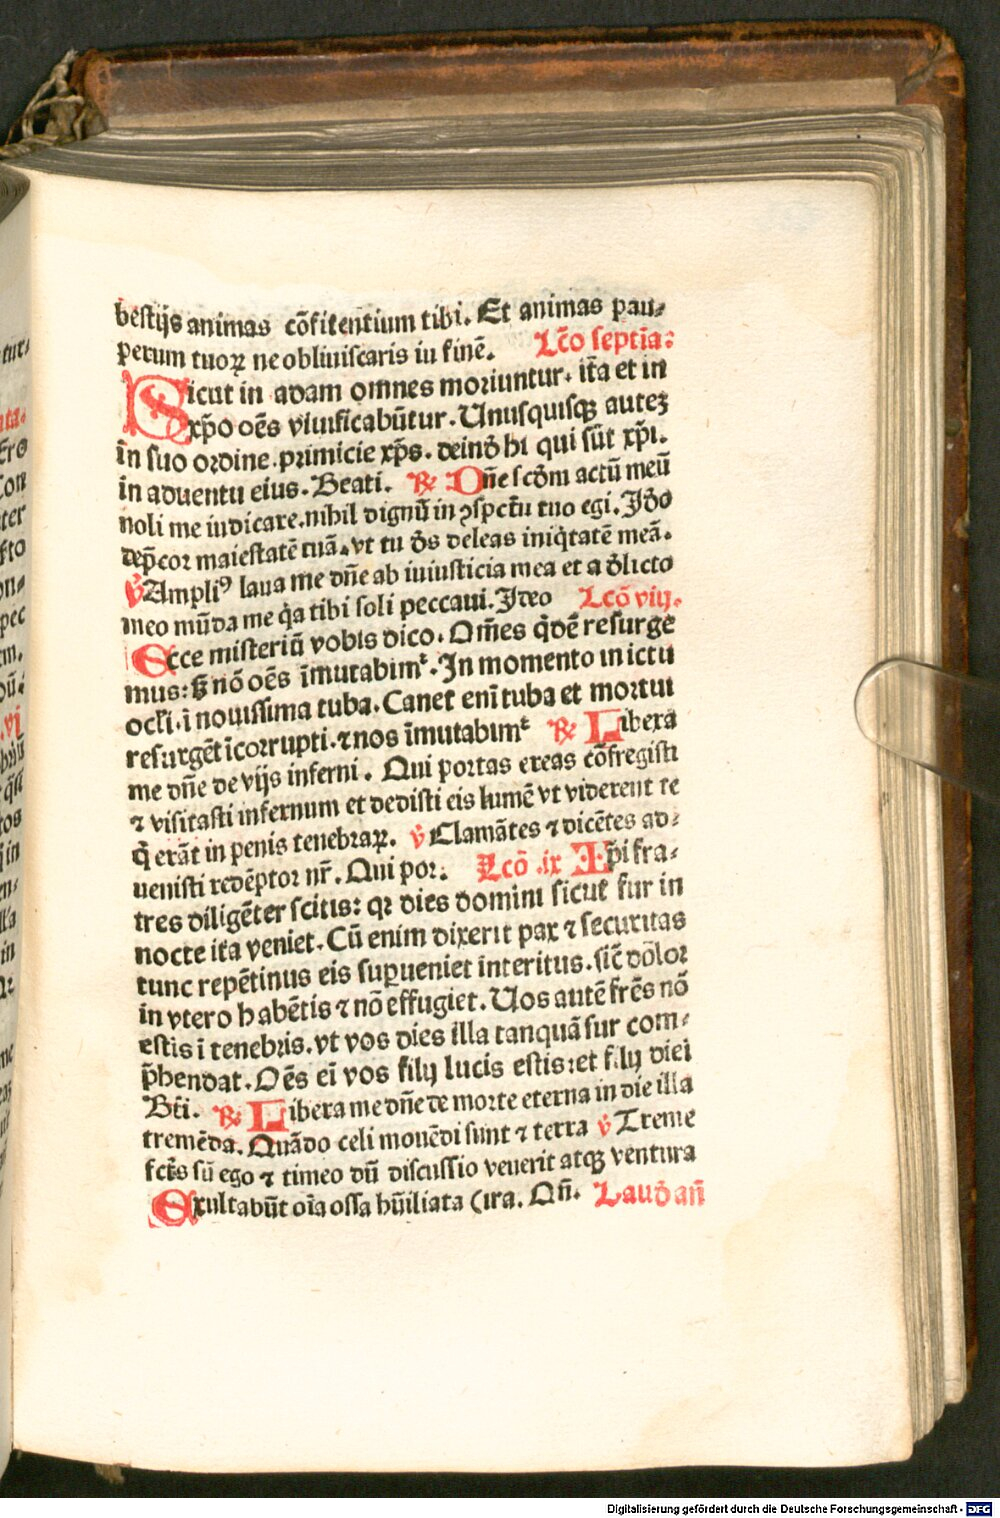 bestijs animas cōfitentium tibi. Et animas pau⸗
perum tuoꝝ ne obliuiscaris in finē. Lc̄o septīa:
Sicut in adam omnes moriuntur. ita et in
xp̄o oēs viuificabūtur. Unusquisqꝫ autez
in suo ordine. primicie xp̄s. deinđ hi qui sūt xp̄i.
in aduentu eius. Beati. ℟ Dn̄e scđm actū meū
noli me iudicare. nihil dignū in ↄspctū tuo egi. Iđo
dep̄cor maiestatē tuā. vt tu đs deleas iniq̇tatē meā.
℣ Ampliꝰ laua me dn̄e ab iniusticia mea et a đlicto
meo mūda me q̇a tibi soli peccaui. Ideo Lcō viij.
Ecce misteriū vobis dico. Om̄es q̇dē resurge
mus: sꝫ nō oēs īmutabimᷣ. In momento in ictu
ocl̄i. ī nouissima tuba. Canet enī tuba et mortui
resurgēt īcorrupti. ⁊ nos īmutabimᷣ ℟ Libera
me dn̄e de vijs inferni. Qui portas ereas cōfregisti
⁊ visitasti infernum et dedisti eis lumē vt viderent te
q̄ erāt in penis tenebraꝝ. ℣ Clamātes ⁊ dicētes ad⸗
uenisti redēptor nr̄. Qui por. Lcō .ix Ip̄i fra⸗
tres diligēter scitis: qꝛ dies domini sicut fur in
nocte ita veniet. Cū enim dixerit pax ⁊ securitas
tunc repētinus eis suꝑueniet interitus. sic̄ dōlor
in vtero habētis ⁊ nō effugiet. Uos autē frēs nō
estis ī tenebris. vt vos dies illa tanquā fur com⸗
p̄hendat. Oēs ei̅ vos filij lucis estis: et filij diei
Bt̄i. ℟ Libera me dn̄e de morte eterna in die illa
tremēda. Quādo celi mouēdi sunt ⁊ terra ℣ Treme
fct̄s sū ego ⁊ timeo dū discussio venerit atqꝫ ventura
Exultabūt oīa ossa hūiliata (ira. Qn̄. Lauđ an̄
Digitalisierung gefördert durch die Deutsche Forschungsgemeinschaft - DFG